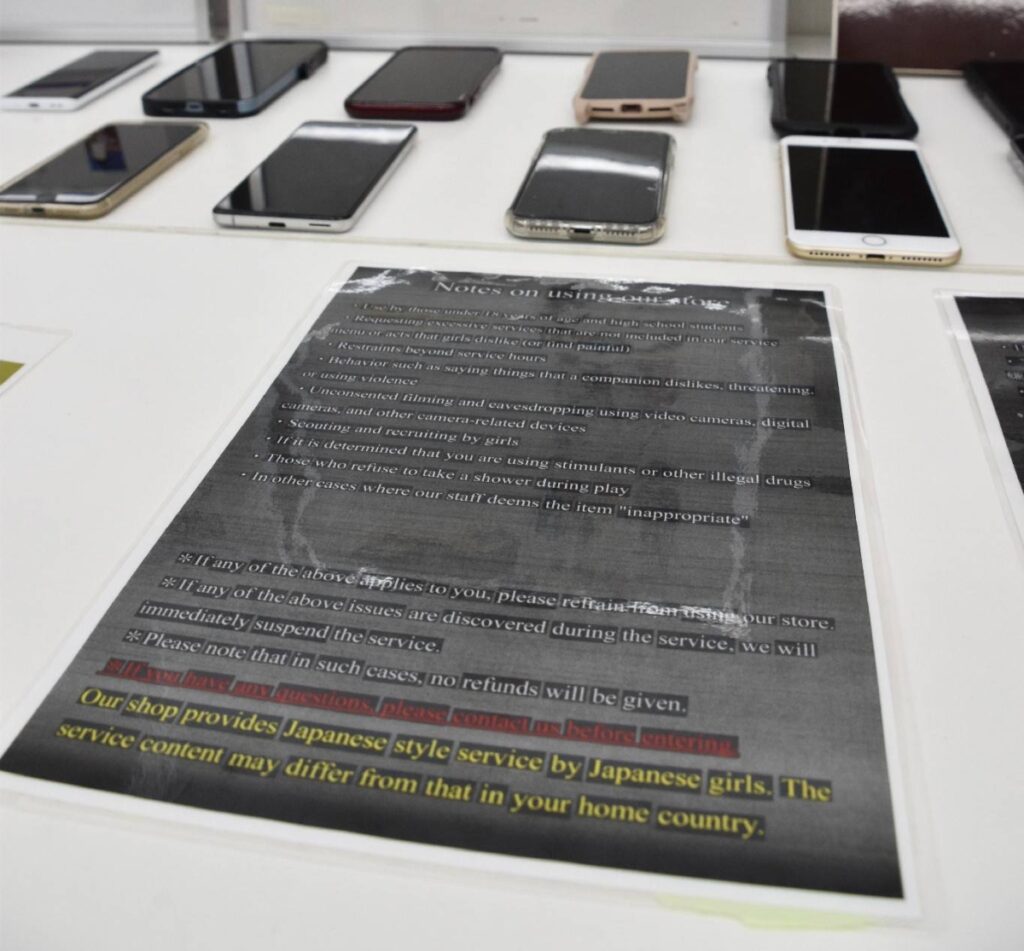 Notes on using our store
・Use by those under 18 years of age and high school students
・Requesting excessive services that are not included in our service
menu or acts that girls dislike (or find painful)
・Restraints beyond service hours
・Behavior such as saying things that a companion dislikes, threatening,
or using violence
・Unconsented filming and eavesdropping using video cameras, digital
cameras, and other camera-related devices
・Scouting and recruiting by girls
・If it is determined that you are using stimulants or other illegal drugs
・Those who refuse to take a shower during play
・In other cases where our staff deems the item "inappropriate"
※If any of the above applies to you, please refrain from using our store.
※If any of the above issues are discovered during the service, we will
immediately suspend the service.
※Please note that in such cases, no refunds will be given.
※If you have any questions, please contact us before entering.
Our shop provides Japanese style service by Japanese girls. The
service content may differ from that in your home country.